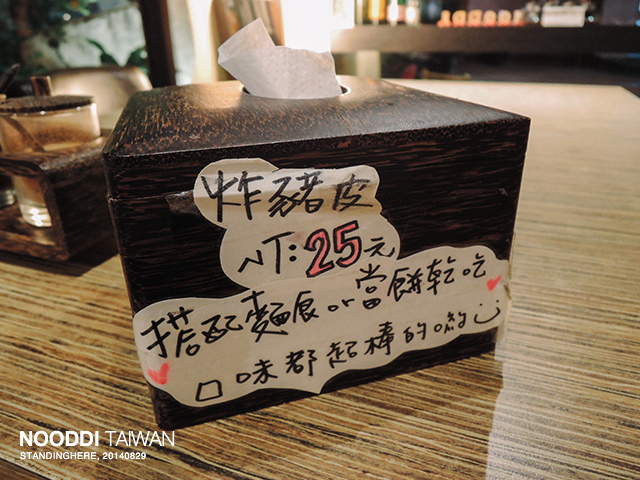 炸豬皮
NT:25元
搭配麵食or當餅乾吃
口味都超棒的喲
NOODDI TAIWAN
STANDINGHERE, 20140829